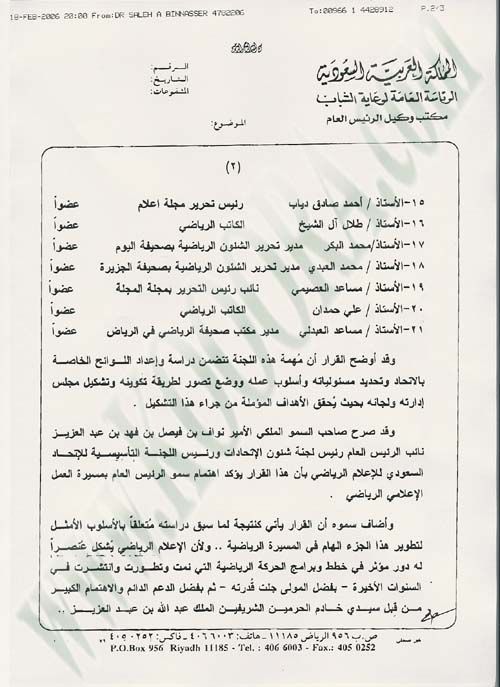 18-FEB-2006 20:00 From:DR SALEH A BINNASSER 4782206 To:00966 1 4428912 P.2/3
المملكة العربية السعودية
الرئاسة العامة لرعاية الشباب
مكتب وكيل الرئيس العام
الرقم:
التاريخ:
المشفوعات:
الموضوع:
(٢)
١٥-الأستاذ / أحمد صادق دياب رئيس تحرير مجلة اعلام عضواً
١٦-الأستاذ / طلال آل الشيخ الكاتب الرياضي عضواً
١٧-الأستاذ/محمد البكر مدير تحرير الشئون الرياضية بصحيفة اليوم عضواً
١٨-الأستاذ / محمد العبدي مدير تحرير الشئون الرياضية بصحيفة الجزيرة عضواً
١٩-الأستاذ / مساعد العصيمي نائب رئيس التحرير بمجلة المجلة عضواً
٢٠-الأستاذ / علي حمدان الكاتب الرياضي عضواً
٢١-الأستاذ / مساعد العبدلي مدير مكتب صحيفة الرياضي في الرياض عضواً
وقد أوضح القرار أن مُهمة هذه اللجنة تتضمن دراسة وإعداد اللوائح الخاصة
بالاتحاد وتحديد مسئولياته وأسلوب عمله ووضع تصور لطريقة تكوينه وتشكيل مجلس
إدارته ولجانه بحيث يُحقق الأهداف المؤملة من جراء هذا التشكيل .
وقد صرح صاحب السمو الملكي الأمير نواف بن فيصل بن فهد بن عبد العزيز
نائب الرئيس العام رئيس لجنة شئون الإتحادات ورئيس اللجنة التأسيسية للإتحاد
السعودي للإعلام الرياضي بأن هذا القرار يؤكد اهتمام سمو الرئيس العام بمسيرة العمل
الإعلامي الرياضي .
وأضاف سموه أن القرار يأتي كنتيجة لما سبق دراسته مُتعلقاً بالأسلوب الأمثل
لتطوير هذا الجزء الهام في المسيرة الرياضية .. ولأن الإعلام الرياضي يُشكل عُنصراً
له دور مؤثر في خطط وبرامج الحركة الرياضية التي نمت وتطورت وانتشرت في
السنوات الأخيرة - بفضل المولى جلت قُدرته - ثم بفضل الدعم الدائم والاهتمام الكبير
من قبل سيدي خادم الحرمين الشريفين الملك عبد الله بن عبد العزيز ..
ص.ب ٩٥٦ الرياض ١١١٨٥ - هاتف: ٤٠٦٦٠٠٣ - فاكس: ٤٠٥٠٢٥٢
P.O.Box 956 Riyadh 11185 - Tel. : 406 6003 - Fax.: 405 0252